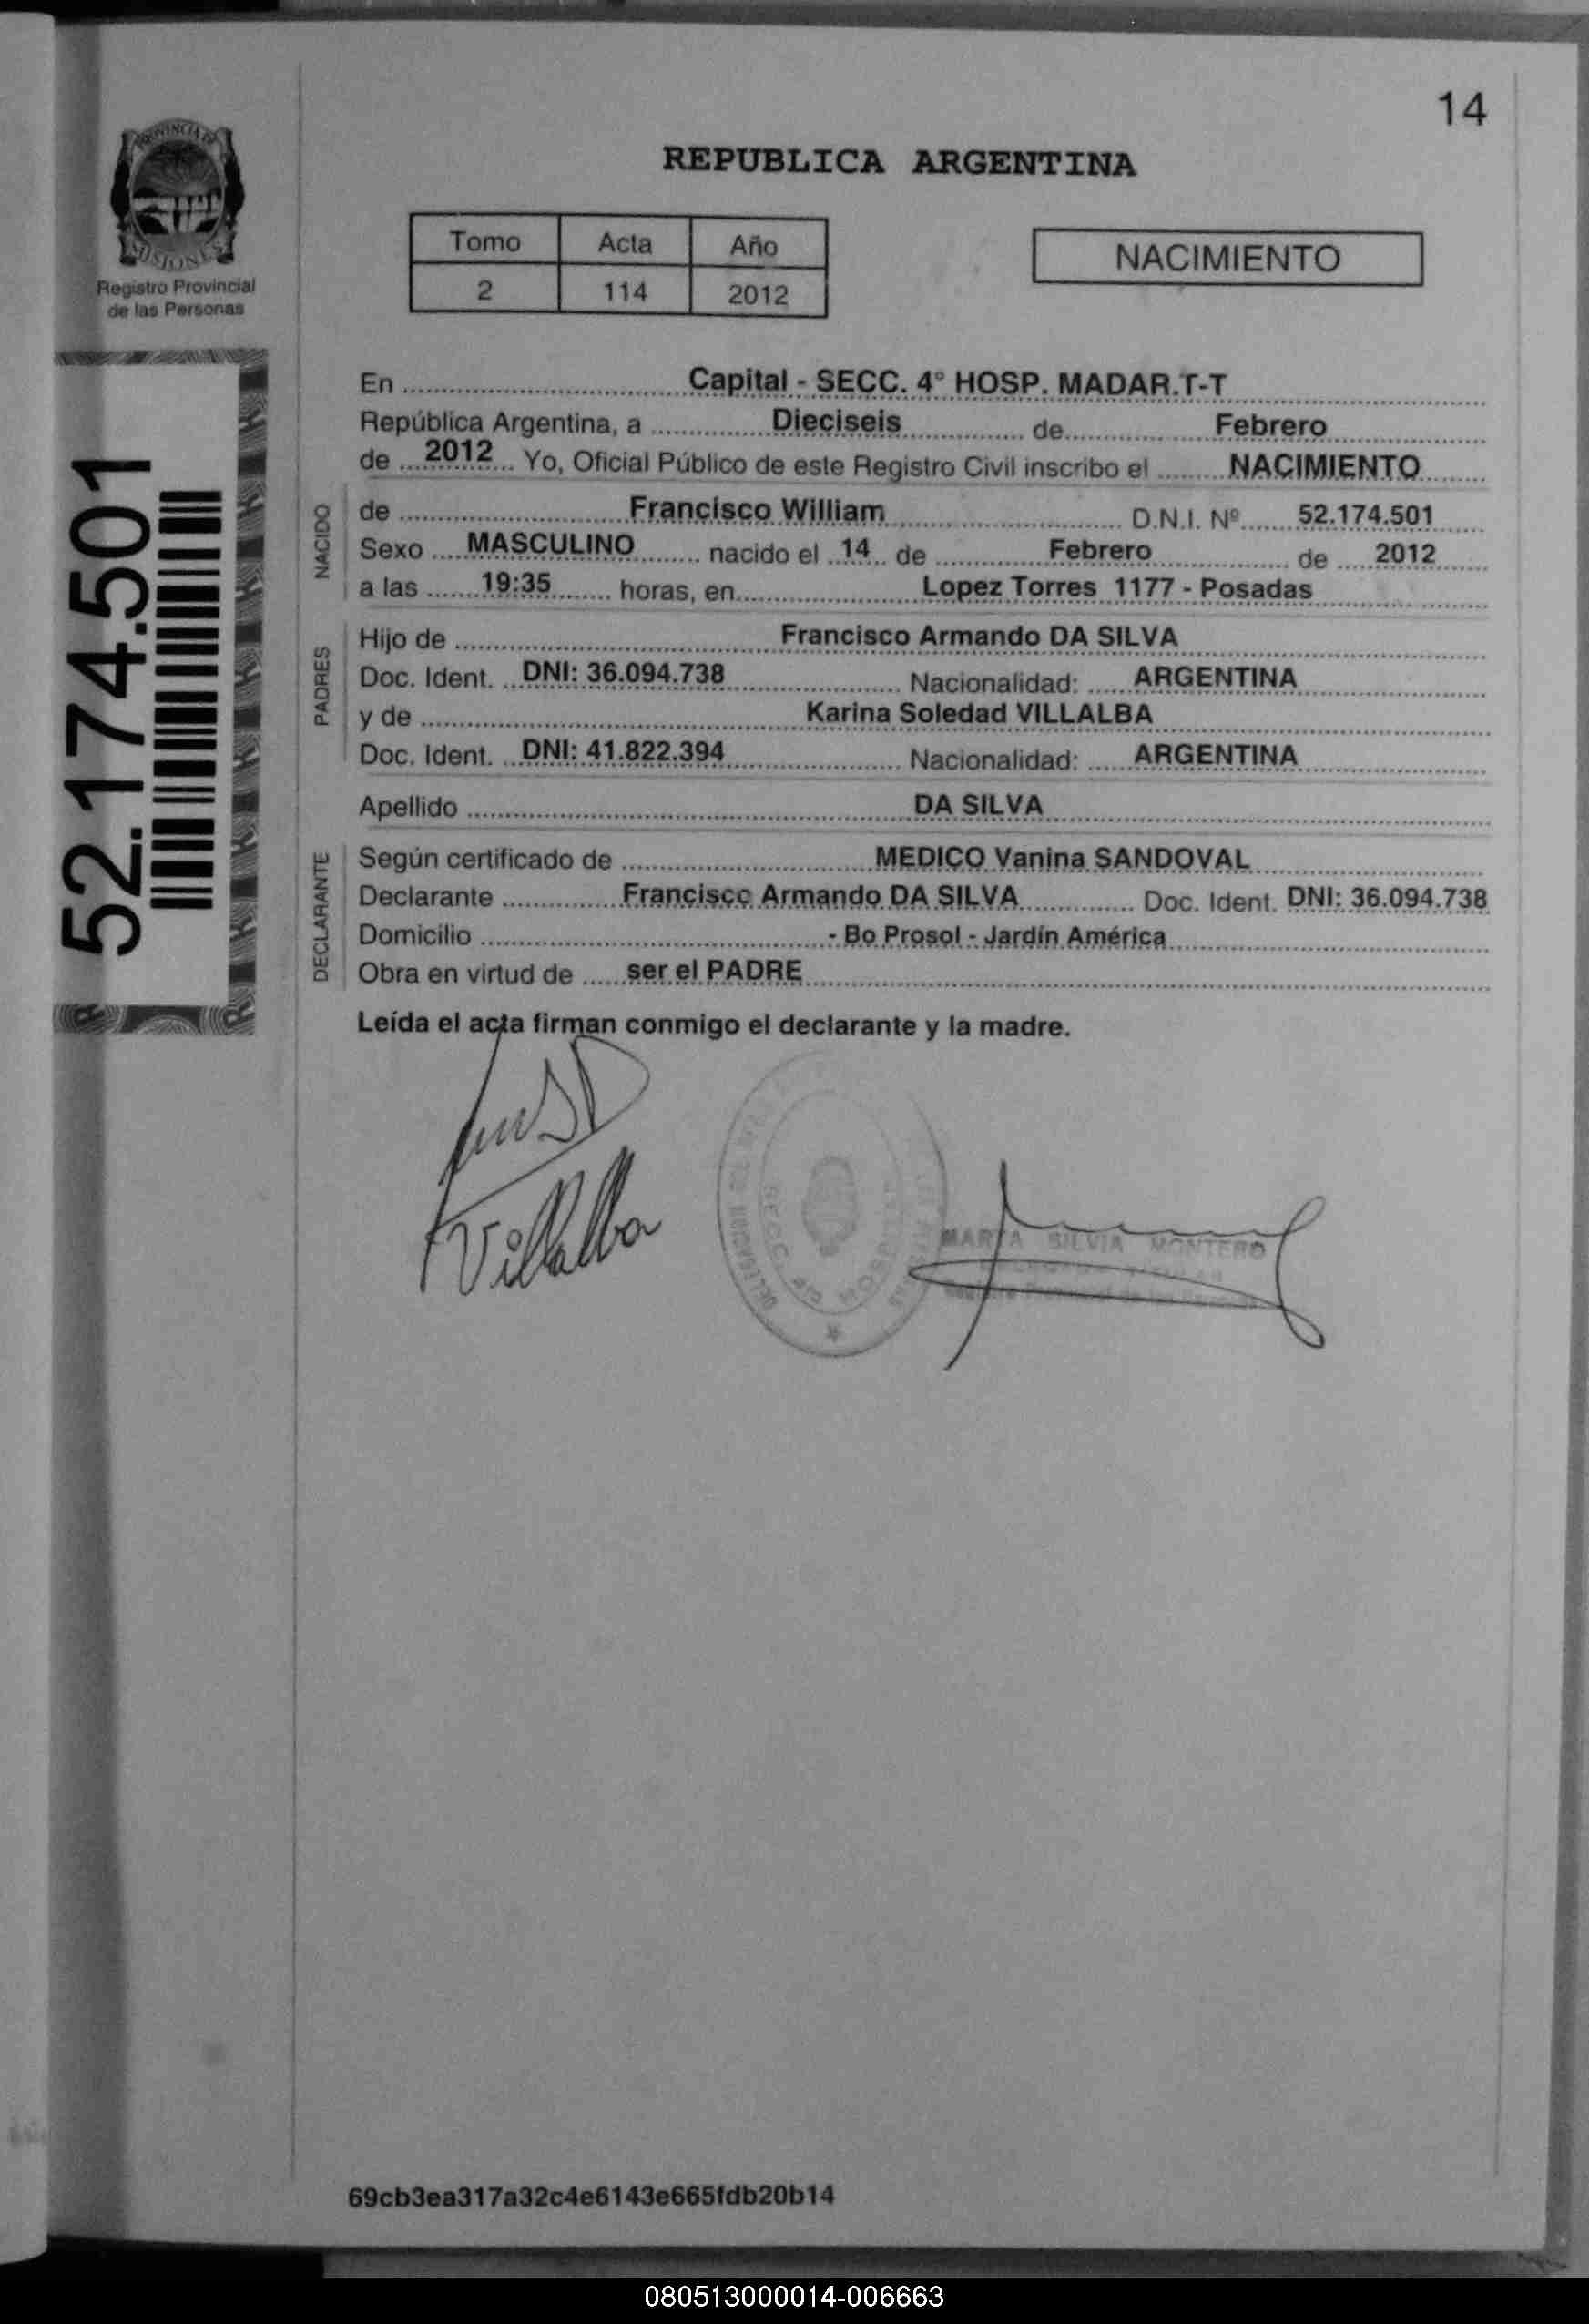 14
PROVINCIA DE
MISIONES
Registro Provincial
de las Personas
52.174.501
REPUBLICA ARGENTINA
Tomo Acta Año
2 114 2012
NACIMIENTO
En Capital - SECC. 4° HOSP. MADAR.T-T
República Argentina, a Dieciseis de Febrero
de 2012 Yo, Oficial Público de este Registro Civil inscribo el NACIMIENTO
NACIDO
de Francisco William D.N.I. Nº 52.174.501
Sexo MASCULINO nacido el 14 de Febrero de 2012
a las 19:35 horas, en Lopez Torres 1177 - Posadas
PADRES
Hijo de Francisco Armando DA SILVA
Doc. Ident. DNI: 36.094.738 Nacionalidad: ARGENTINA
y de Karina Soledad VILLALBA
Doc. Ident. DNI: 41.822.394 Nacionalidad: ARGENTINA
Apellido DA SILVA
DECLARANTE
Según certificado de MEDICO Vanina SANDOVAL
Declarante Francisco Armando DA SILVA Doc. Ident. DNI: 36.094.738
Domicilio - Bo Prosol - Jardín América
Obra en virtud de ser el PADRE
Leída el acta firman conmigo el declarante y la madre.
Villalba
MARTA SILVIA MONTERO
69cb3ea317a32c4e6143e665fdb20b14
080513000014-006663